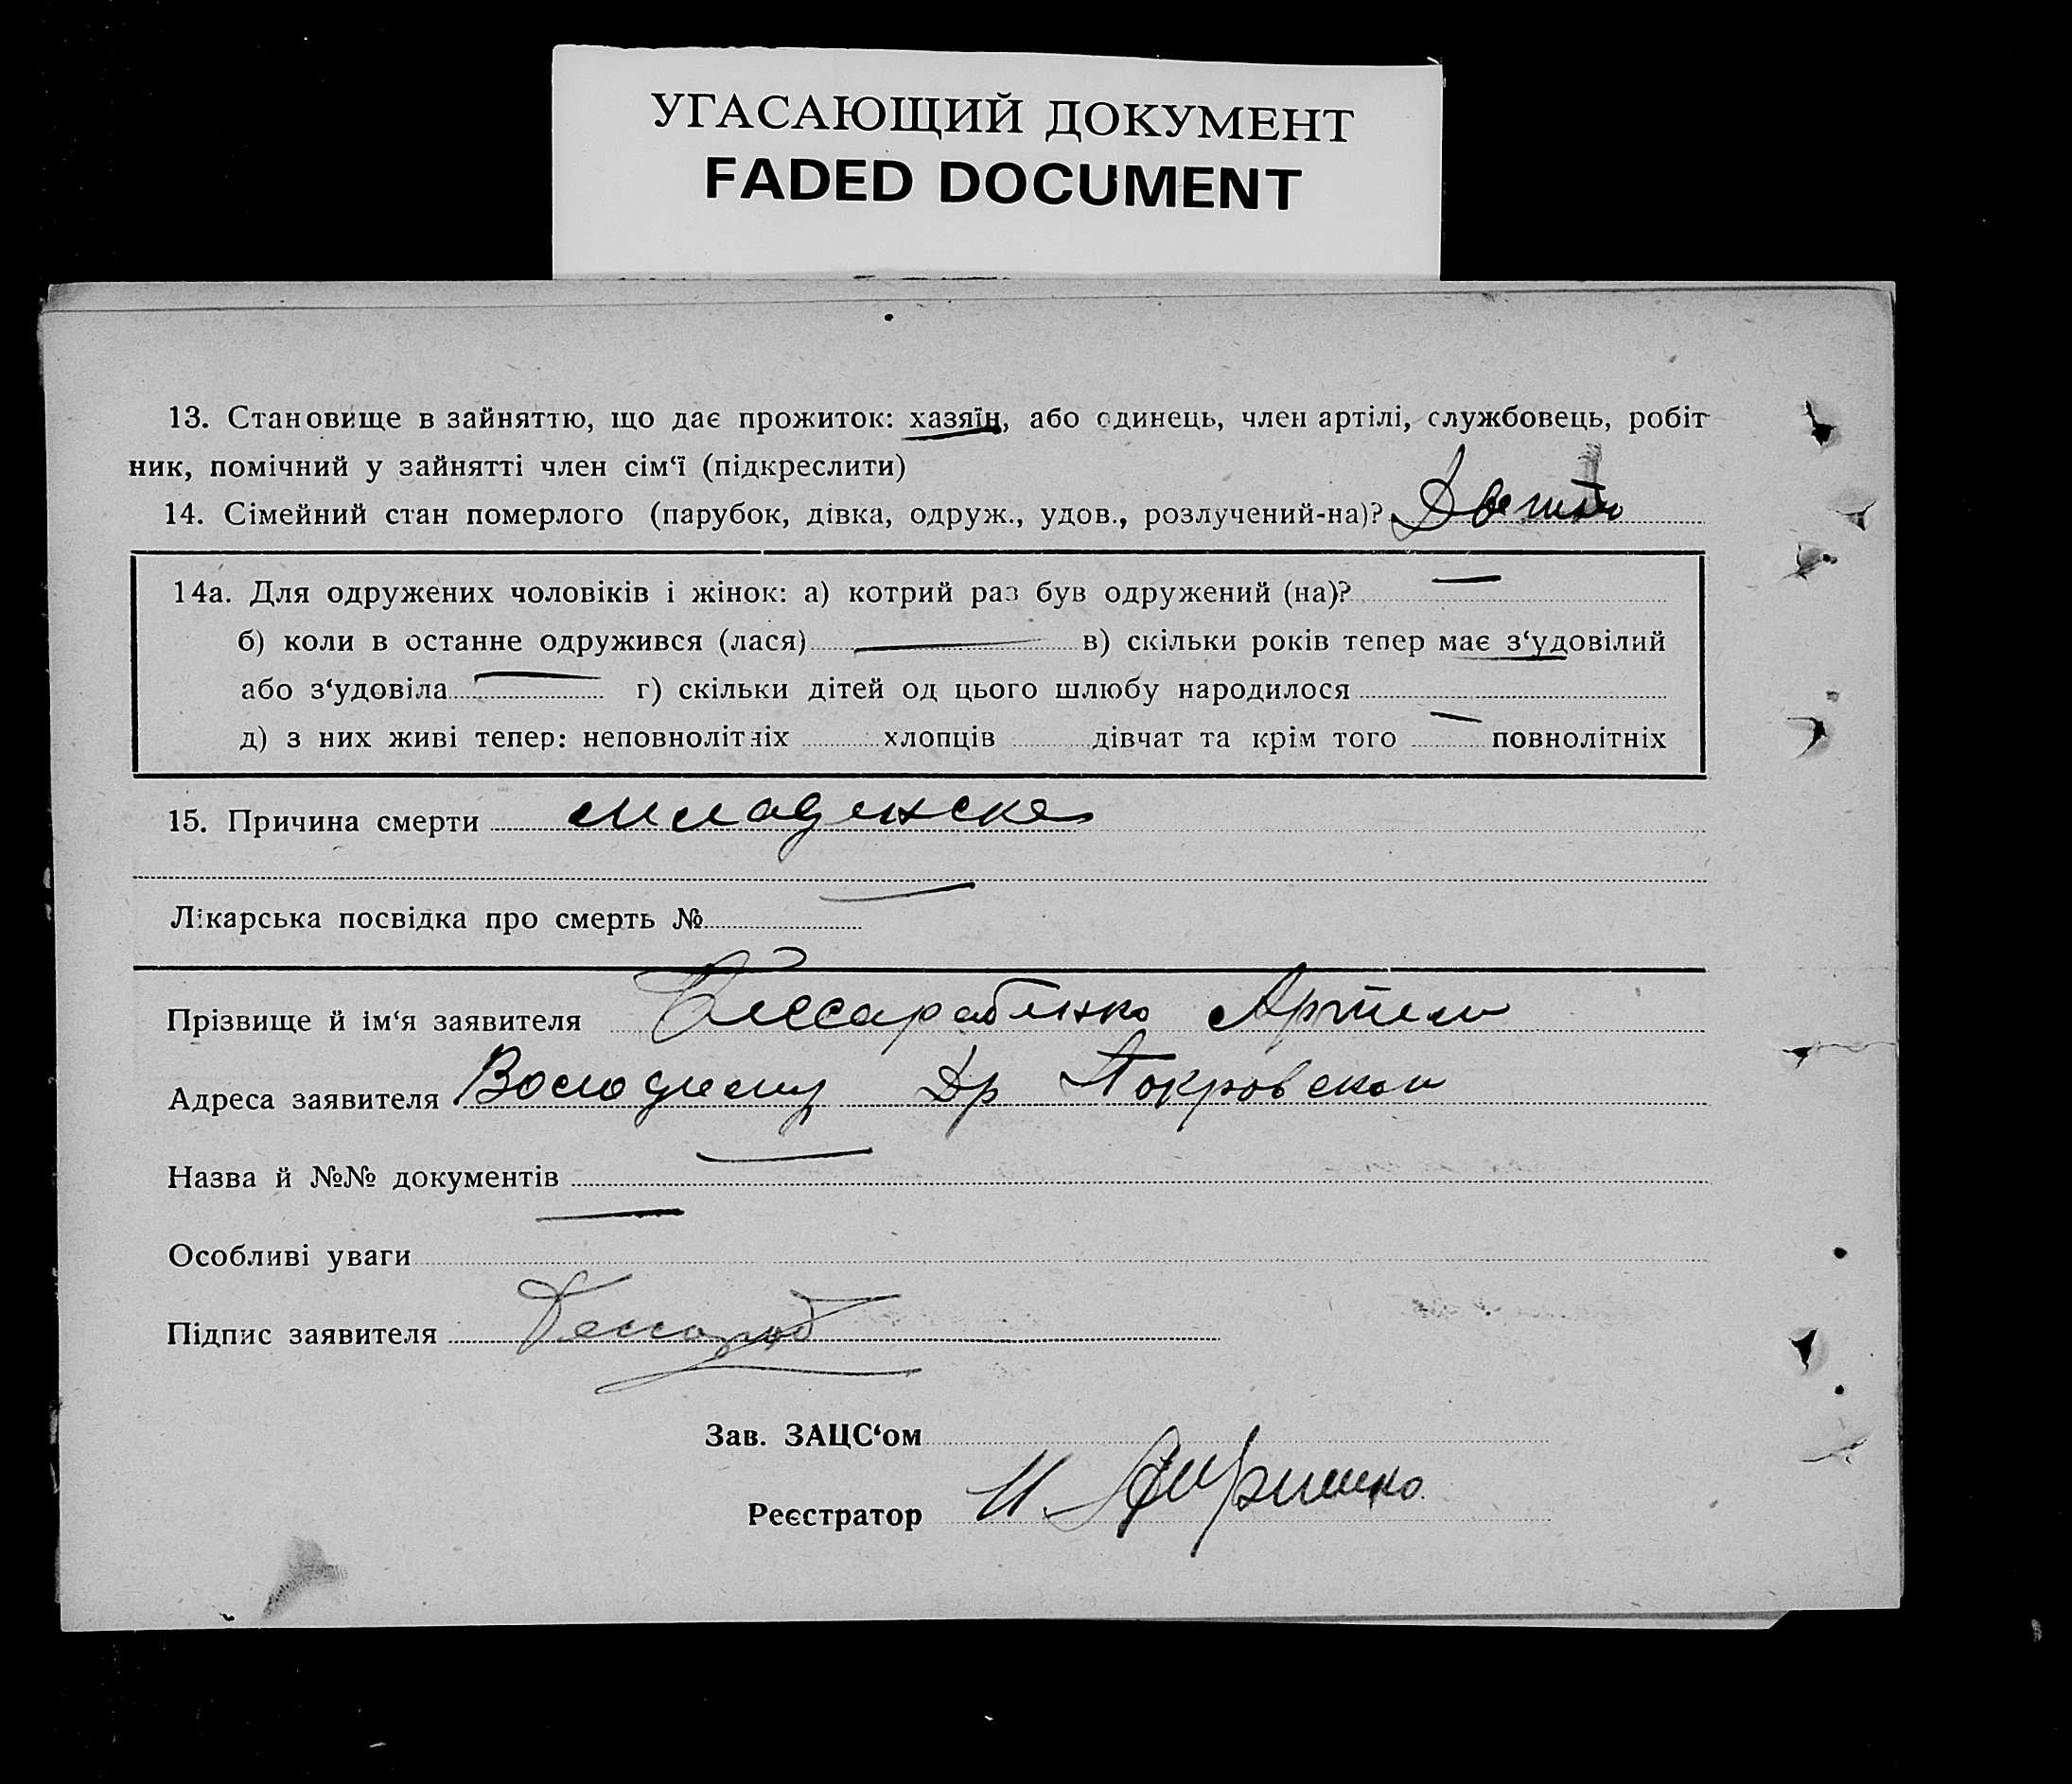 УГАСАЮЩИЙ ДОКУМЕНТ
FADED DOCUMENT
13. Становище в зайняттю, що дає прожиток: хазяїн, або одинець, член артілі, службовець, робіт-
ник, помічний у зайнятті член сім‘ї (підкреслити)
14. Сімейний стан померлого (парубок, дівка, одруж., удов., розлучений-на)?
14а. Для одружених чоловіків і жінок: а) котрий раз був одружений (на)? —
б) коли в останне одружився (лася) — в) скільки років тепер має з‘удовілий
або з‘удовіла — г) скільки дітей од цього шлюбу народилося
д) з них живі тепер: неповнолітніх хлопців дівчат та крім того — повнолітніх
15. Причина смерти младенска
Лікарська посвідка про смерть № —
Прізвище й ім‘я заявителя Бессарабенко Артем
Адреса заявителя Володимир Др Покровской
Назва й №№ документів —
Особливі уваги —
Підпис заявителя Бессараб
Зав. ЗАЦС‘ом
Реєстратор И.